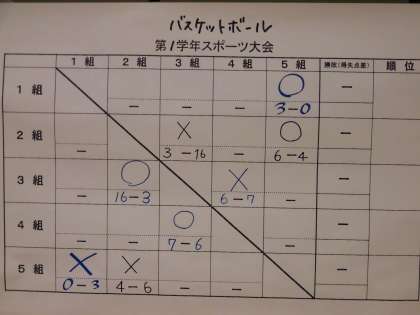 バスケットボール
第1学年スポーツ大会
1 組 2 組 3 組 4 組 5 組 勝敗(得失点差) 順 位
1 組 ○
－ － － 3－0 －
2 組 × ○ －
－ 3－16 － 6－4
3 組 ○ × －
－ 16－3 6－7 －
4 組 ○ －
－ － 7－6 －
5 組 × × －
0－3 4－6 － －